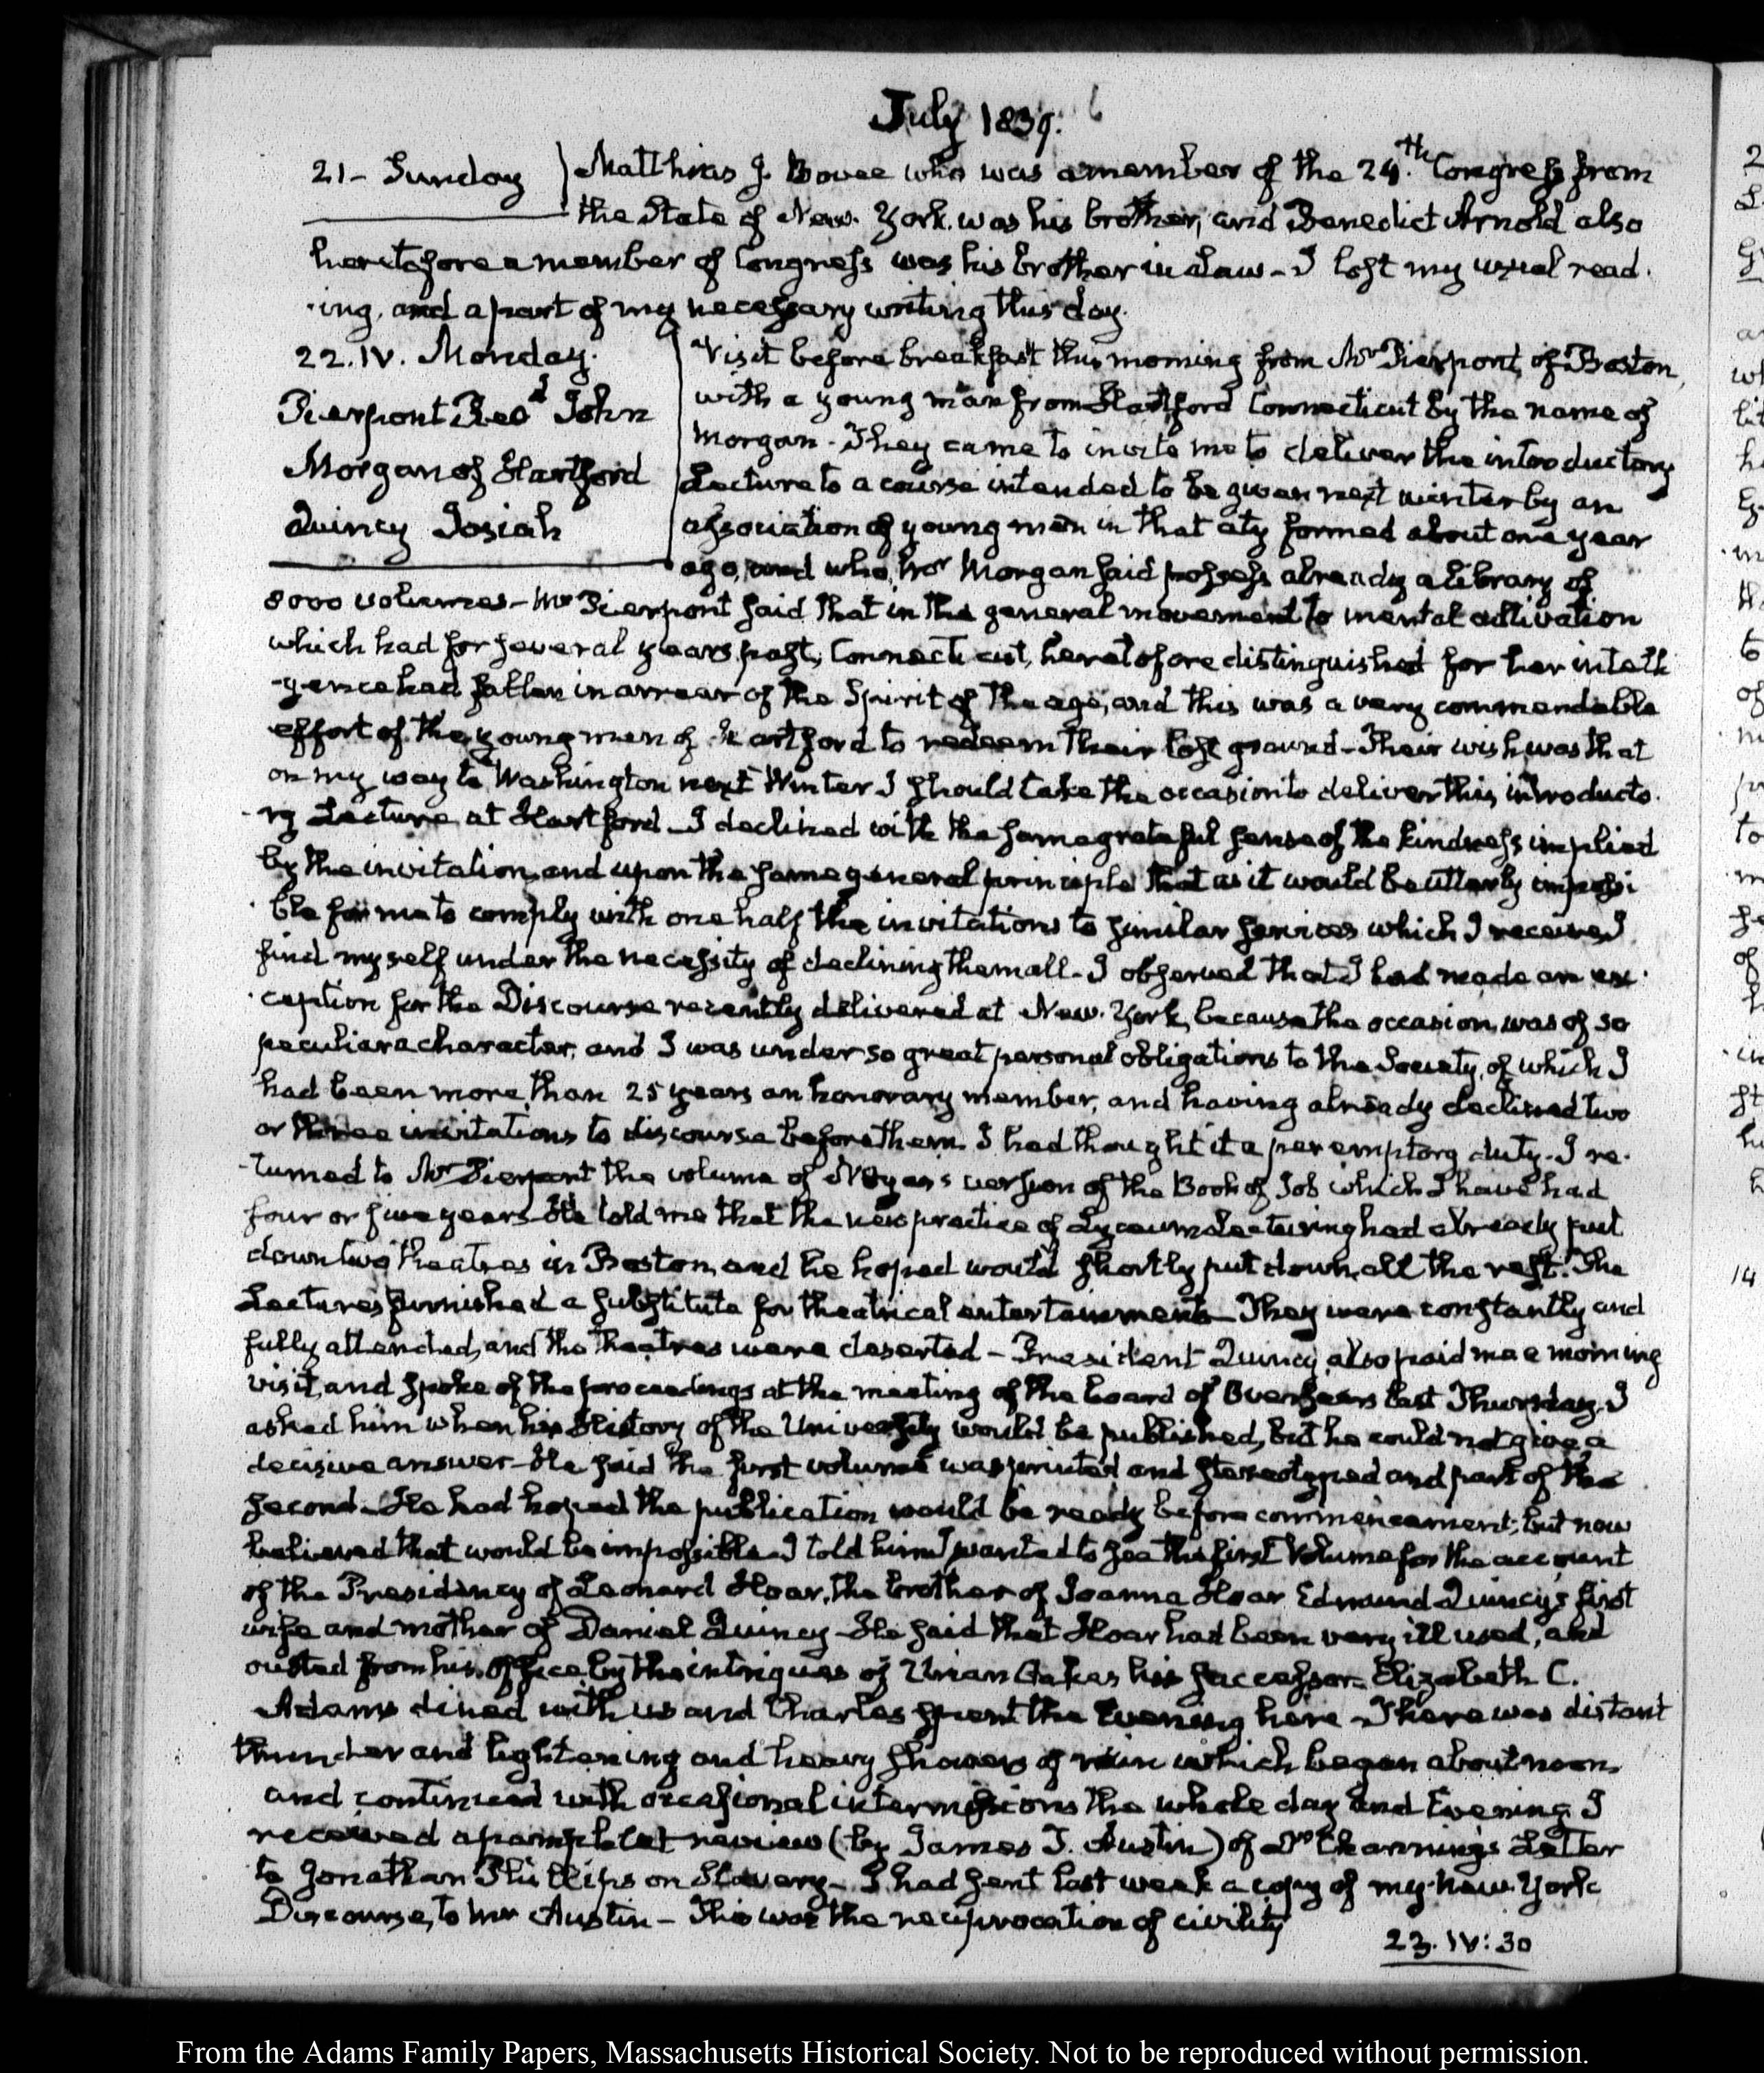 July 1839. 6
21- Sunday
Matthias J. Bovee who was a member of the 24.th Congress from
the State of New-York was his brother, and Benedict Arnold also
heretofore a member of Congress was his brother in law- I lost my usual read-
-ing, and a part of my necessary writing this day.
22. IV. Monday.
Pierpont Revd John
Morgan of Hartford
Quincy Josiah
Visit before breakfast this morning from Mr Pierpont, of Boston,
with a young man from Hartford Connecticut by the name of
Morgan- They came to invite me to deliver the introductory
Lecture to a course intended to be given next winter by an
association of young men in that city formed about one year
ago, and who, Mr Morgan said possess already a library of
8000 volumes- Mr Pierpont said that in the general movement to mental cultivation
which had for several years past, Connecticut, heretofore distinguished for her intelli
-gence had fallen in arrear of the Spirit of the age, and this was a very commendable
effort of the young men of Hartford to redeem their lost ground- Their wish was that
on my way to Washington next Winter I should take the occasion to deliver this introducto-
-ry Lecture at Hartford- I declined with the same grateful sense of the kindness implied
by the invitation, and upon the same general principle that as it would be utterly impossi
-ble for me to comply with one half the invitations to similar services which I received I
find myself under the necessity of declining them all- I observed that I had made an ex-
-ception for the Discourse recently delivered at New-York, because the occasion, was of so
peculiar a character, and I was under so great personal obligations to the Society, of which I
had been more than 25 years an honorary member, and having already declined two
or three invitations to discourse before them I had thought it a peremptory duty- I re-
-turned to Mr Pierpont the volume of Noyes's version of the Book of Job which I have had
four or five years- He told me that the new practice of Lyceum lecturing had already put
down two theatres in Boston, and he hoped would shortly put down, all the rest. The
Lectures furnished a substitute for theatrical entertainments- They were constantly and
fully attended, and the theatres were deserted- President Quincy also paid me a morning
visit, and spoke of the proceedings at the meeting of the board of Overseers last Thursday. I
asked him when his History of the University would be published, but he could not give a
decisive answer- He said the first volume was printed and stereotyped and part of the
second- He had hoped the publication would be ready before commencement, but now
believed that would be impossible- I told him I wanted to see the first Volume for the account
of the Presidency of Leonard Hoar, the brother of Joanna Hoar Edmund Quincy's first
wife and mother of Daniel Quincy- He said that Hoar had been very ill used, and
ousted from his office by the intrigues of Urian Oakes his successor- Elizabeth C.
Adams dined with us and Charles spent the Evening here- There was distant
thunder and lightening and heavy showers of rain which began about noon,
and continued with occasional intermissions the whole day and Evening. I
received a pamphlet review (by James T. Austin) of Dr Channing's Letter
to Jonathan Phillips on Slavery- I had sent last week a copy of my New-York
Discourse, to Mr Austin- This was the reciprocation of civility
23. IV: 30
From the Adams Family Papers, Massachusetts Historical Society. Not to be reproduced without permission.